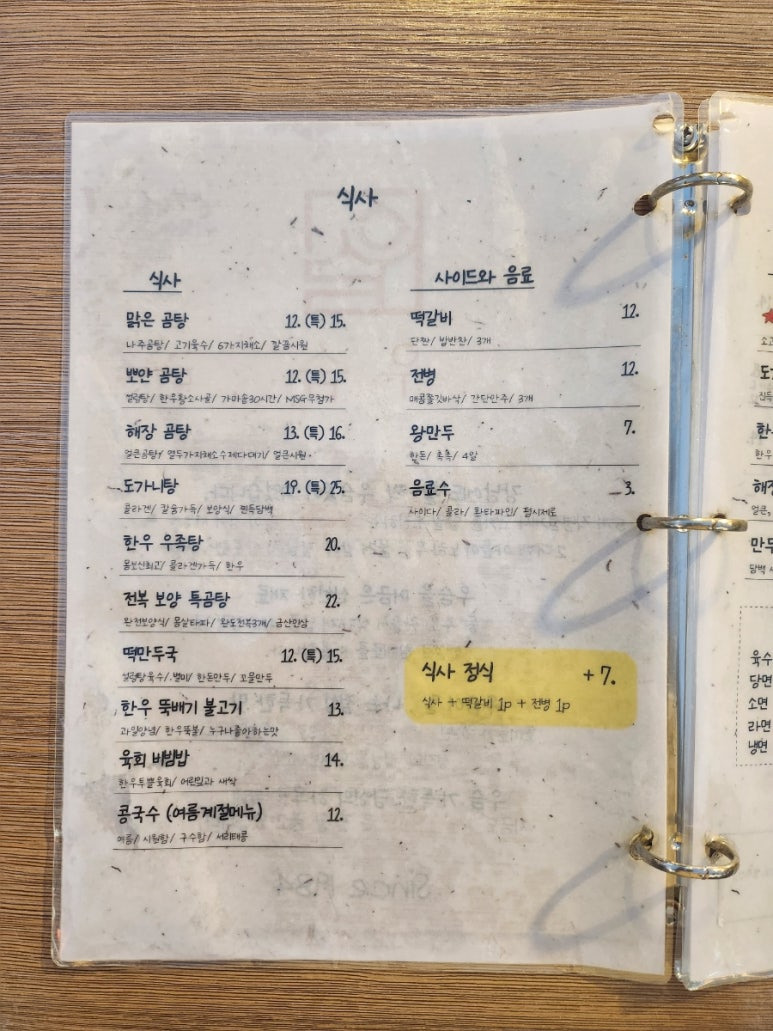 식사
식사
맑은 곰탕 12. (특) 15.
나주곰탕/ 고기육수/ 6가지채소/ 깔끔시원
뽀얀 곰탕 12. (특) 15.
설렁탕/ 한우황소사골/ 가마솥30시간/ MSG무첨가
해장 곰탕 13. (특) 16.
얼큰곰탕/ 열두가지채소수제다대기/ 얼큰시원.
도가니탕 19. (특) 25.
콜라겐/ 잡음가득/ 보양식/ 쫀득담백
한우 우족탕 20.
몸보신최고/ 콜라겐가득/ 한우
전복 보양 특곰탕 22.
완전보양식/ 몸살타파/ 완도전복3개/ 금산인삼
떡만두국 12. (특) 15.
설렁탕육수/ 별미/ 한돈만두/ 꼬물만두
한우 뚝배기 불고기 13.
과일양념/ 한우뚝불/ 누구나좋아하는맛
육회 비빔밥 14.
한우투뿔육회/ 어린잎과 새싹
콩국수 (여름계절메뉴) 12.
여름/ 시원함/ 구수함/ 서리태콩
사이드와 음료
떡갈비 12.
단짠/ 밥반찬/ 3개
전병 12.
매콤쫄깃바삭/ 간단안주/ 3개
왕만두 7.
한돈/ 촉촉/ 4알
음료수 3.
사이다/ 콜라/ 환타파인/ 펩시제로
식사 정식 +7.
식사 + 떡갈비 1p + 전병 1p
육수
당면
소면
라면
냉면